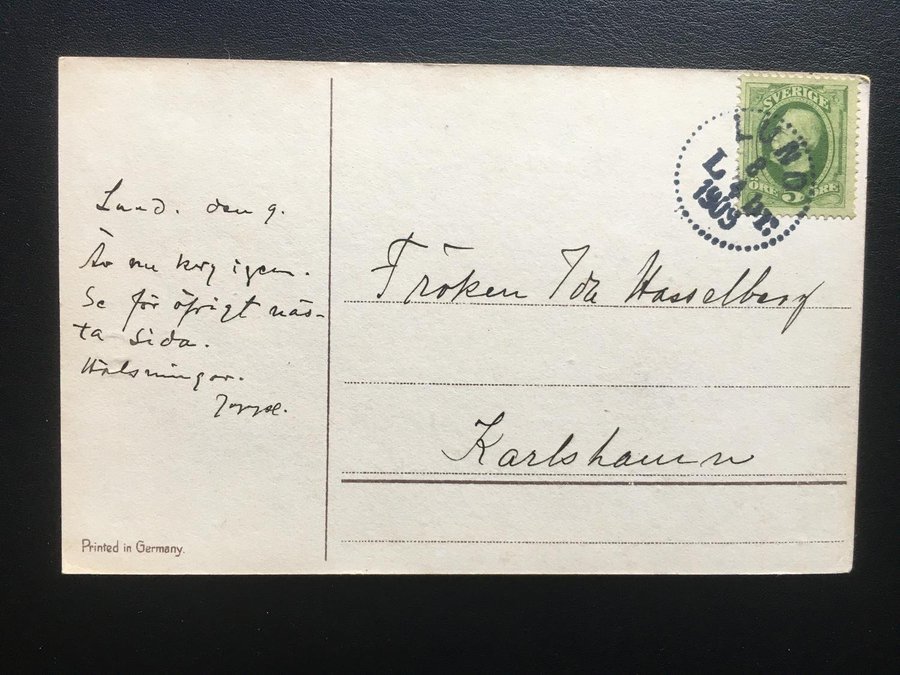 Lund. den 9.
Är nu kry igen.
Se för öfrigt näs-
ta sida.
Hälsningar.
Printed in Germany.
SVERIGE
ÖRE 5 ÖRE
LUND
8
L
1909
Fröken Ida Hasselberg
Karlshamn